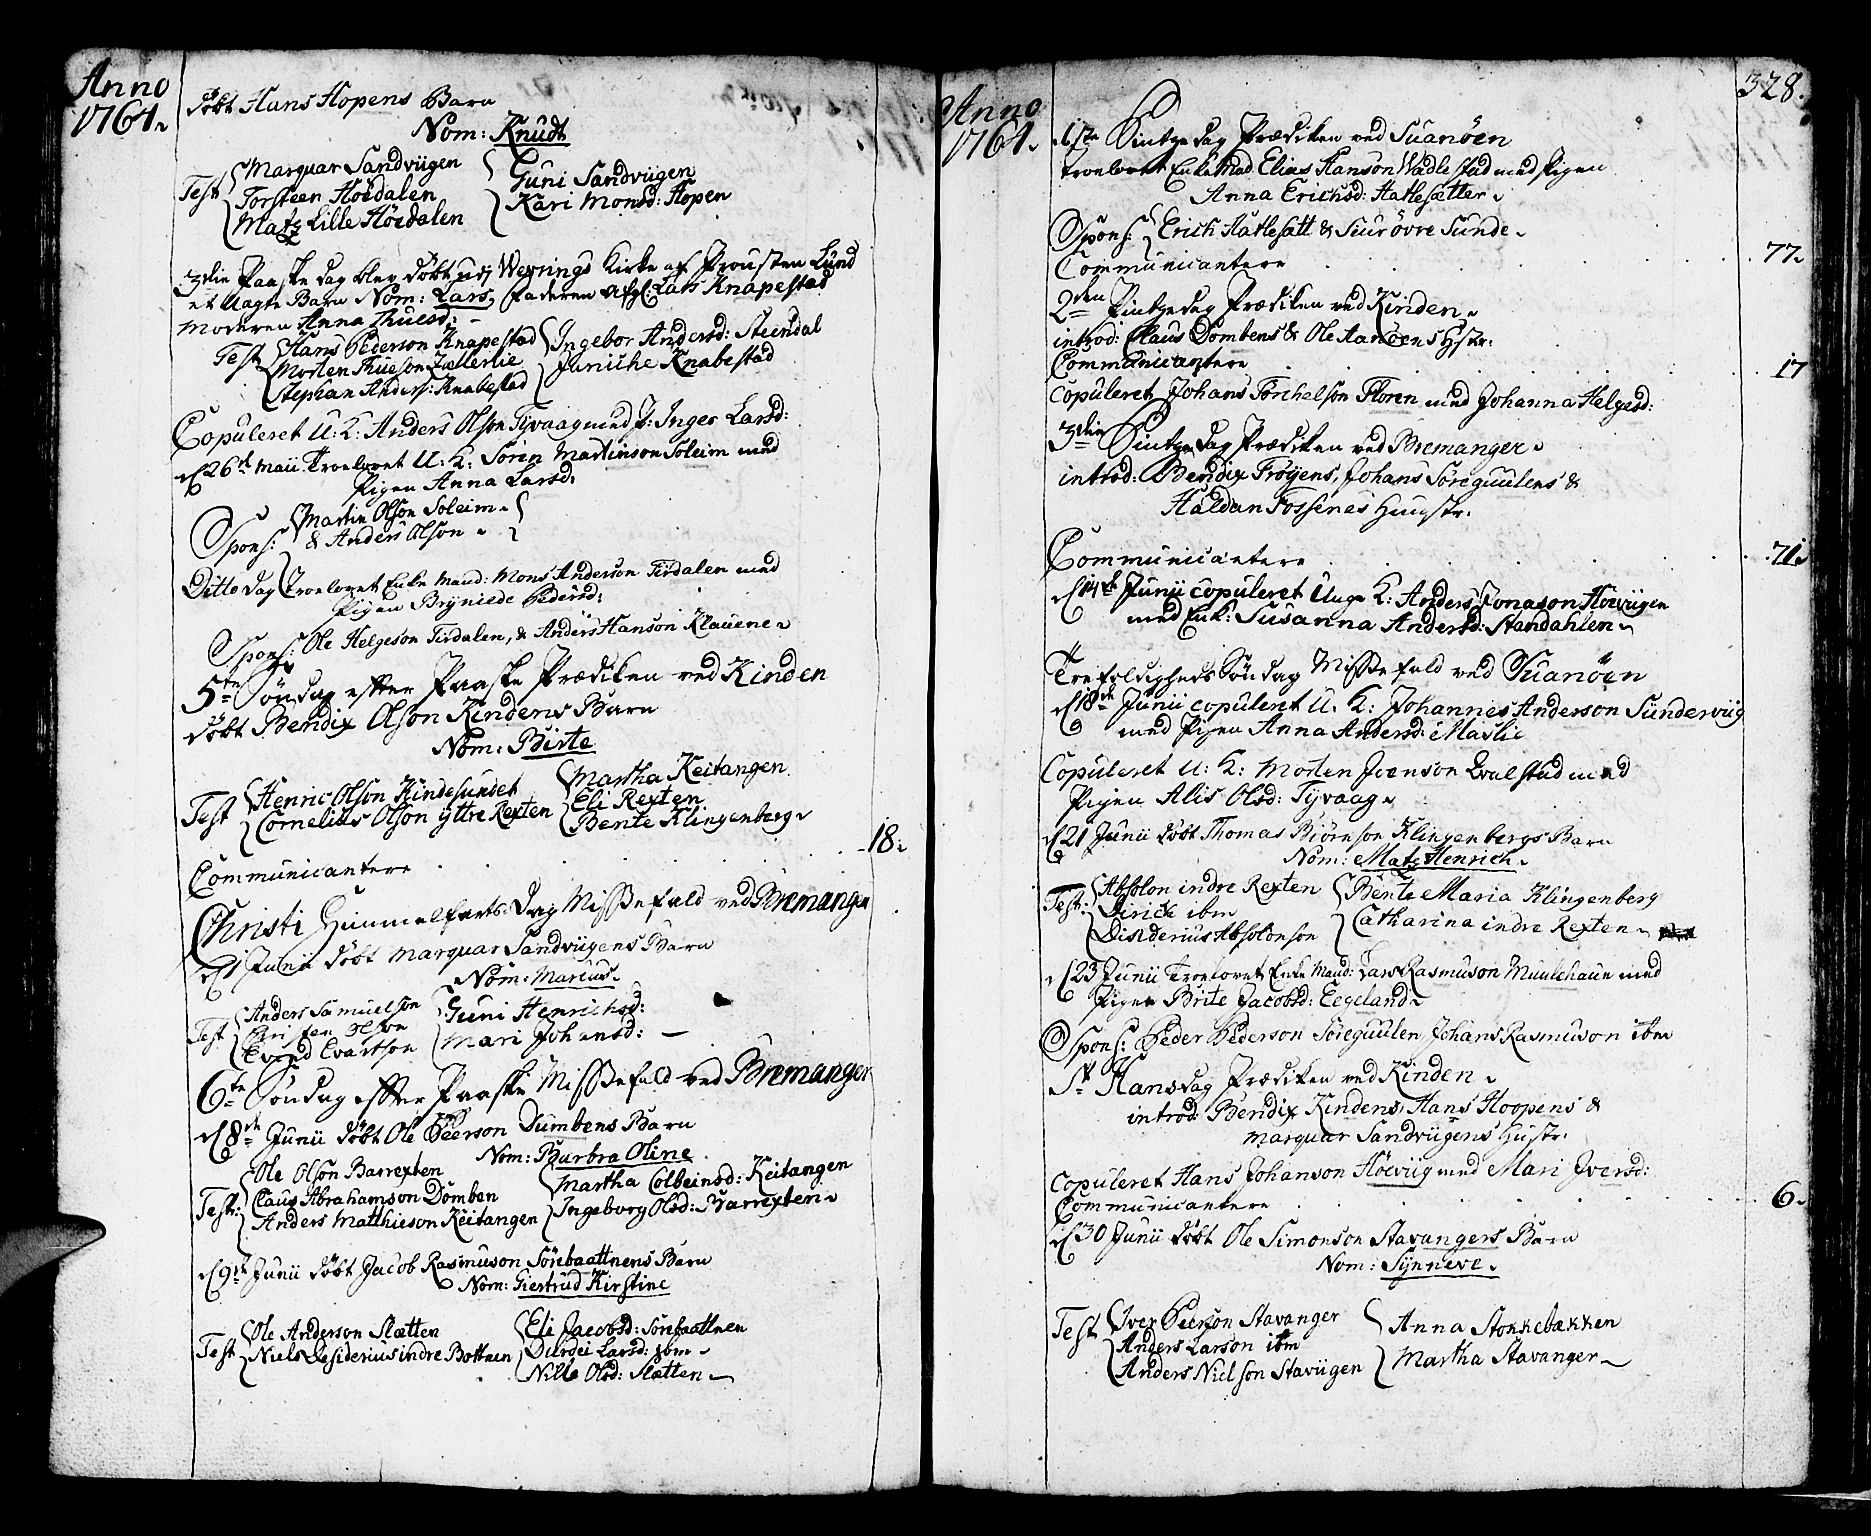 Anno
1764.
døbt Hans Hopens Barn
Nom: Knudt
Test
Marquar Sandviigen
Torsteen Höedalen
Matz Lille Höedalen
Guni Sandviigen
Kari Monsd: Hopen
3die Paaske dag blev døbt udj Wevrings Kirke af Prousten Lund
et Uægte Barn Nom: Lars, Faderen Afgl: Lars Knapestad
Moderen Anna Thuesd:
Test
Hans Pederson Knapestad
Morten Thueson
Stephan Anders: Knabestad
Ingebor Andersd: Steendal
Juniche Knabestad
Copuleret U: K: Anders Olson Tyvaag med P: Inger Larsd:
d 26de Maii Troelovet U: K: Sören Martinson Soleim med
Pigen Anna Larsd:
Spons:
Martin Olson Soleim
& Anders Olson
Ditto dag Troelovet Enke Mand: Mons Anderson Tirdalen med
Pigen Bryniede Pedersd:
Spons: Ole Helgeson Tirdalen, & Anders Hanson Klauene
5te Söndag efter Paaske Prædiken ved Kinden
døbt Bendix Olson Kindens Barn
Nom: Birte
Test
Henric Olson Kindesundet
Cornelius Olson yttre Rexten
Martha Keitangen
Eli Rexten
Bente Klingenberg
Communicantere 18
Christi Himmelfarts Dag Missefald ved Bremanger
d 1 Junii døbt Marquar Sandviigens Barn
Nom: Marcus
Test
Anders Samuelson
Christen Olson
Evind Evartson
Guni Henrichsd:
Mari Johansd:
6te Söndag efter Paaske Missefald ved Bremanger
d 8de Junii døbt Ole Peerson Dumbens Barn
Nom: Barbra Oline
Test:
Ole Olson Barrexten
Claus Abrahamson Domben
Anders Matthieson Keitangen
Martha Colbeinsd: Keitangen
Ingeborg Olsd: Barrexten
d 9de Junii døbt Jacob Rasmuson Sörebaattnens Barn
Nom: Giertrud Kirstine
Test
Ole Anderson Slætten
Niels Desiderius indre Bottnen
Eli Jacobsd: Sörebaattnen
Durdei Larsd: ibm
Nille Olsd: Slætten
328.
Anno
1764.
1ste Pintze dag Prædiken ved Suanöen
Troelovet Enke Mad Elias Hanson Wadlestad med Pigen
Anna Erichsd: Hatlesætter
Spons: Erich Hatlesætt & Siur övre Sunde
Communicantere 77
2den Pintzedag Prædiken ved Kinden
introd: Claus Dombens & Ole Aanöens Hystr:
Communicantere 17
Copuleret Johans Torchelson Floren med Johanna Helgesd:
3die Pintze dag Prædiken ved Bremanger
introd: Bendix Fröyens, Johans Söreguulens &
Haldan Fossenes Huustr:
Communicantere 71
d 14de Junii copuleret Unge K: Anders Jonason Höeviigen
med Enk: Susanna Andersd: Standahlen
Trefoldigheds Söndag Missefald ved Suanöen
d 18de Junii copuleret U: K: Johannes Anderson Sunderviig
med Pigen Anna Andersd: Maslie
Copuleret U: K: Morten Joenson Qvalstad med
Pigen Alis Olsd: Tyvaag
d 21 Junii døbt Thomas Biörnson Klingenbergs Barn
Nom: Matz Henrich
Test:
Absolon indre Rexten
Dirich ibm
Disiderius Absolonson
Bente Maria Klingenberg
Catharina indre Rexten
d 23 Junii Troelovet Enke Mand: Lars Rasmuson Muulehaun med
Pigen Brite Jacobsd: Eegeland
Spons: Peder Pederson Söreguulen, Johans Rasmuson ibm
St Hans dag Prædiken ved Kinden
introd: Bendix Kindens, Hans Hoopens &
Marquar Sandviigens Hustr:
Copuleret Hans Johanson Höeviig med Mari Iversd:
Communicantere 6
d 30 Junii døbt Ole Simonson Stavangers Barn
Nom: Synneve
Test
Iver Peerson Stavanger
Anders Larson ibm
Anders Nielson Staviigen
Anna Stokkebækken
Martha Stavanger